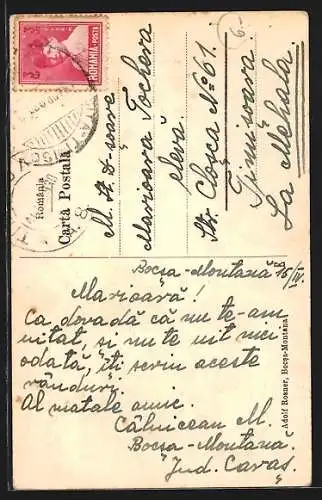 ROMANIA-POSTA
România
Carta Postală
M. St. D-şoare
Marioara Tochera
elevă.
Str. Cloşca No 61.
Timişoara.
La Mehala.
6.
Bocşa-Montană 15/IV.
Marioară!
Ca dovadă că nu te-am
uitat, şi nu te uit nici
odată, îţi scriu aceste
rânduri.
Al matale amic.
Călnicean M.
Bocşa-Montană.
Jud. Caraş.
Adolf Rosner, Bocşa-Montana